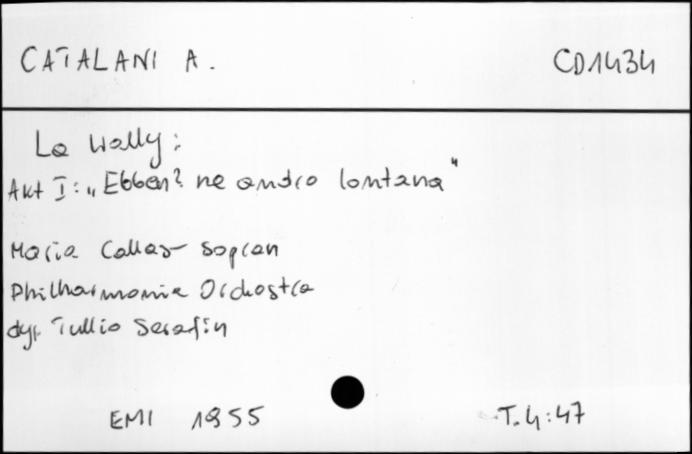 CATALANI A. CD1434
La Wally:
Akt I: „Ebben? ne andro lontana"
Maria Callas - sopran
Philharmonia Orchestra
dyr. Tullio Serafin
EMI 1955 T. 4:47